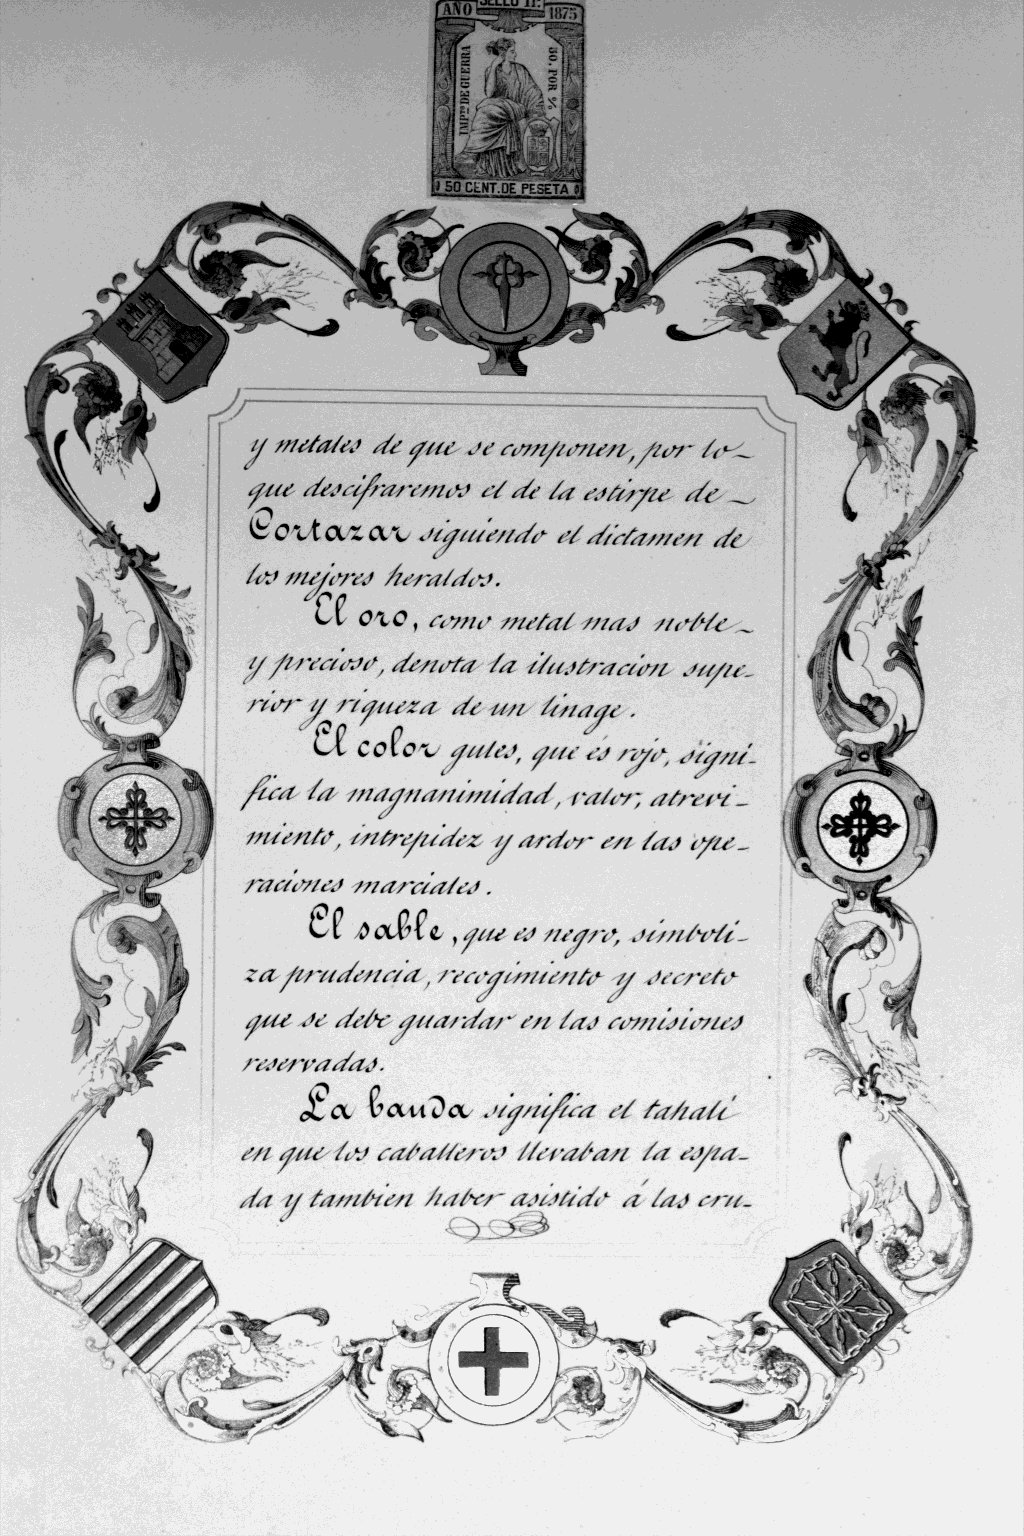 AÑO SELLO 11º 1875
IMPTO DE GUERRA
50. POR %
50 CENT. DE PESETA
y metales de que se componen, por lo-
que descifraremos el de la estirpe de-
Cortazar siguiendo el dictamen de
los mejores heraldos.
El oro, como metal mas noble-
y precioso, denota la ilustracion supe-
rior y riqueza de un linage.
El color gules, que és rojo, signi-
fica la magnanimidad, valor, atrevi-
miento, intrepidez y ardor en las ope-
raciones marciales.
El sable, que es negro, simboli-
za prudencia, recogimiento y secreto
que se debe guardar en las comisiones
reservadas.
La banda significa el tahalí
en que los caballeros llevaban la espa-
da y tambien haber asistido á las cru-